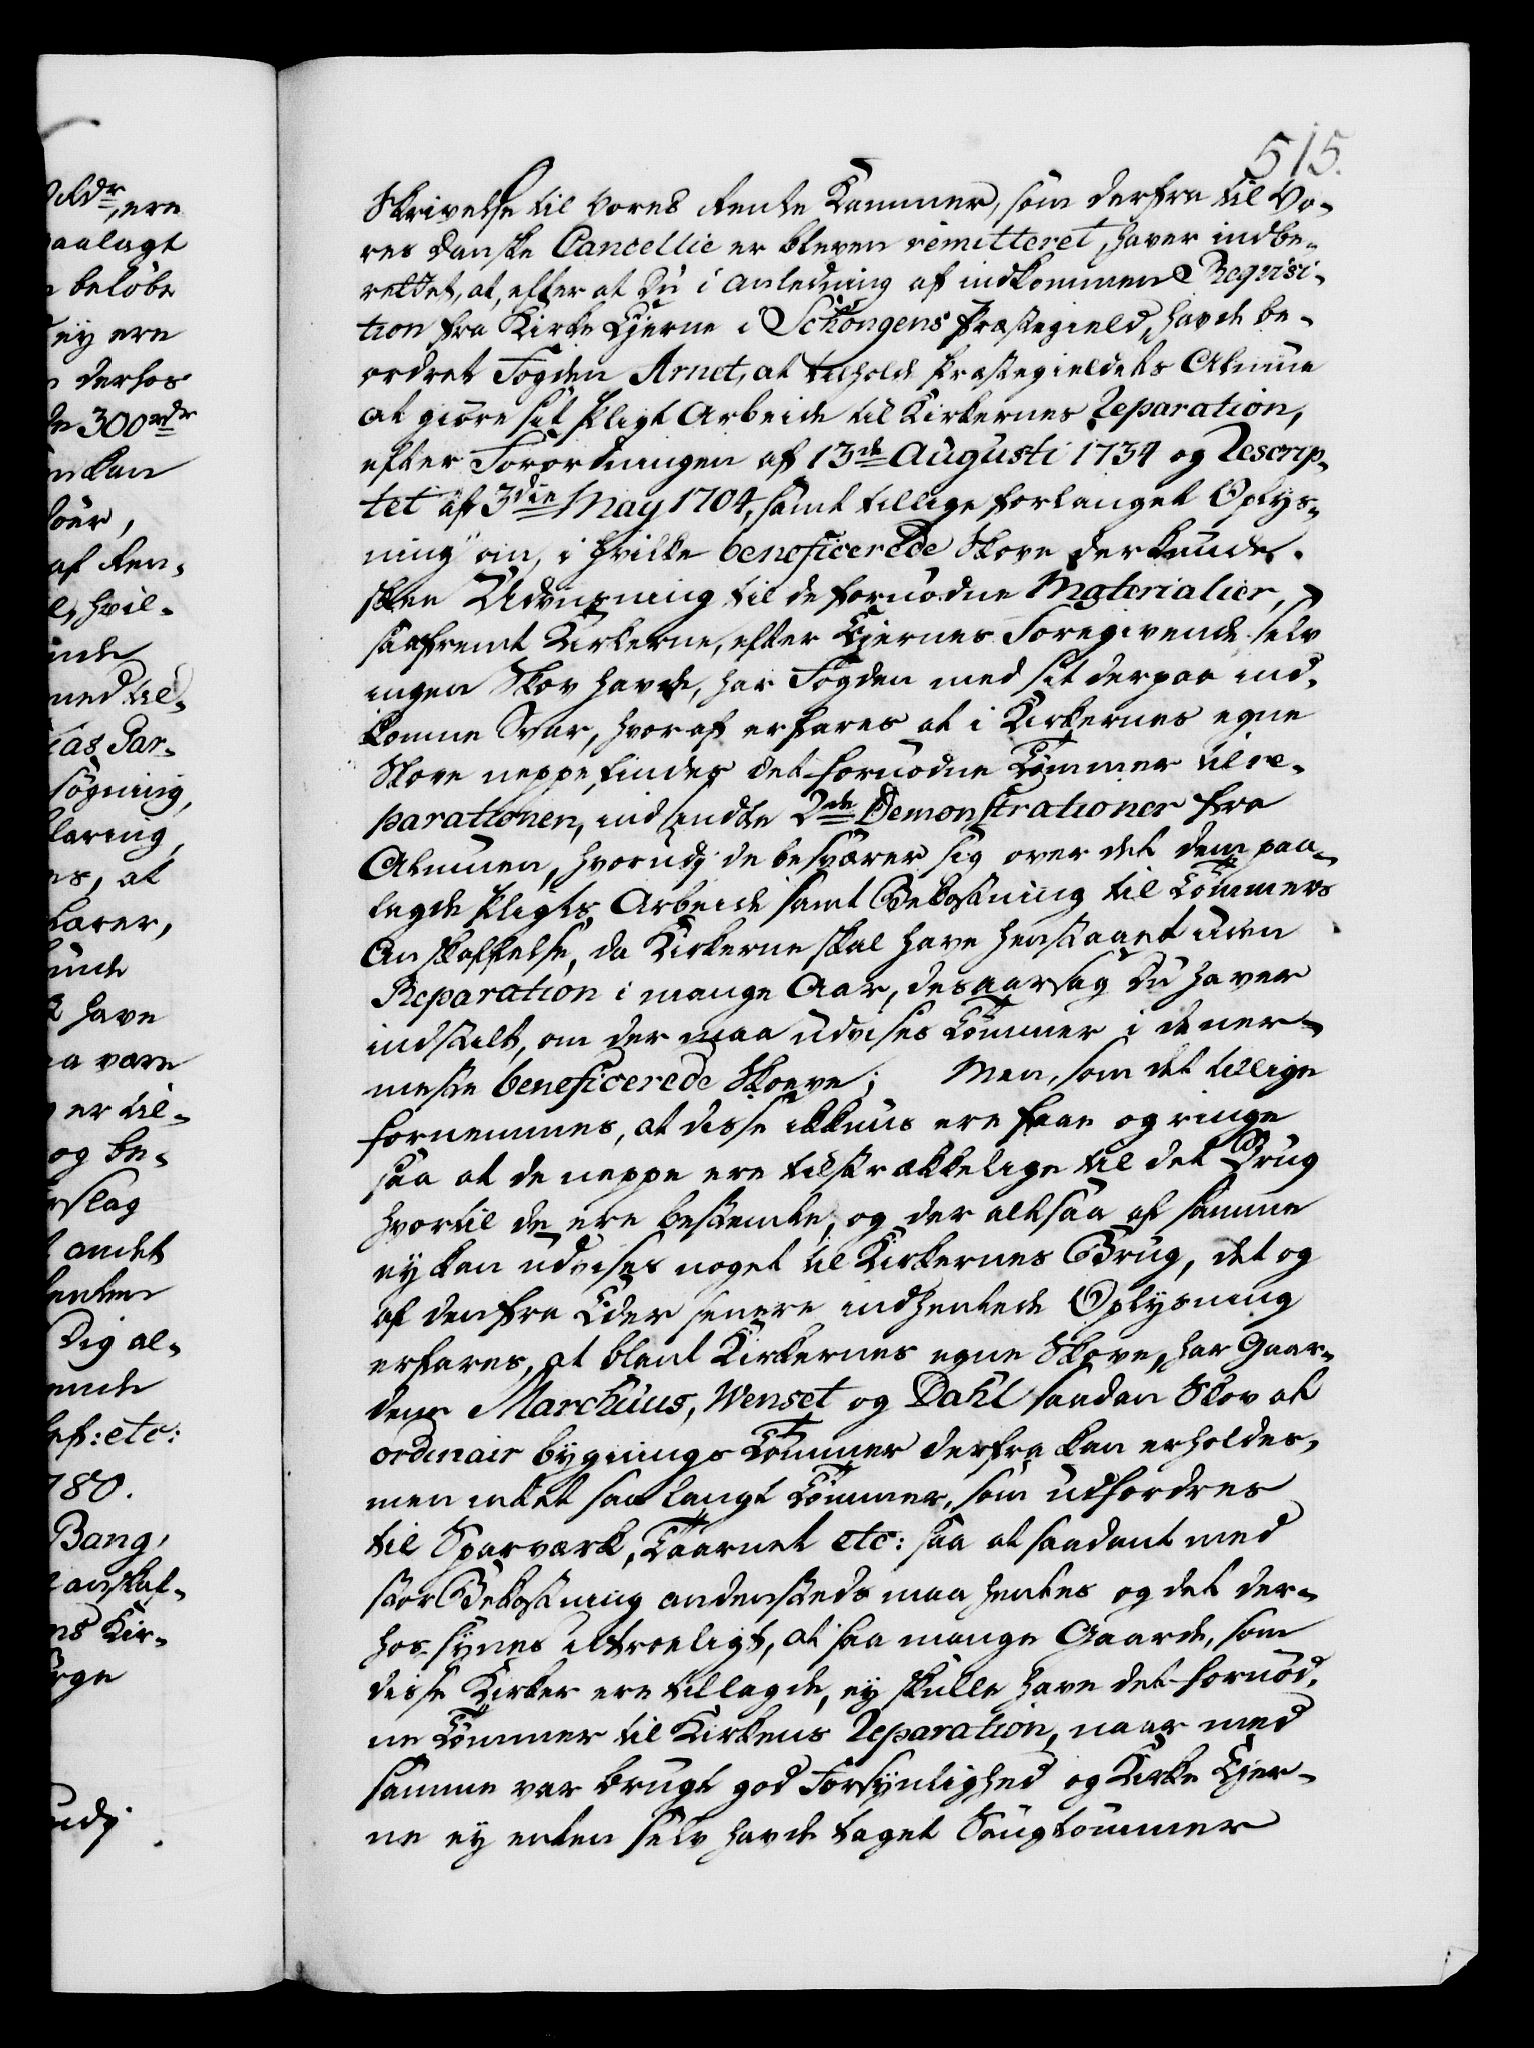 515.
Skrivelse til Vores Rente Kammer, som derfra til Vo-
res danske Cancellie er bleven remitteret, haver indbe-
rettet, at, efter at Du i Anledning af indkommen Reqvisi-
tion fra Kirke Ejerne i Schongens Præstegield, havde be-
ordret Fogden Arnet, at tilholde Præstegieldets Almue
at giøre sit Pligt Arbeide til Kirkernes Reparation,
efter Forordningen af 13de Augusti 1734 og Rescrip-
tet af 3die May 1704, samt tillige forlanget Oplys-
ning om, i hvilke beneficerede Skove der kunde
skee Udviisning til de fornødne Materialier,
saafremt Kirkerne, efter Ejernes Foregivende selv
ingen Skov havde, har Fogden med sit derpaa ind-
komne Svar, hvoraf erfares at i Kirkernes egne
Skove neppe findes det fornødne Tømmer til re-
parationen, indsendte 2de Demonstrationer fra
Almuen, hvorudj de besværer sig over det dem paa-
lagde Pligts Arbeide samt Bekostning til Tømmers
Anskaffelse, da Kirkerne skal have henstaaet uden
Reparation i mange Aar, desaarsag Du haver
indstilt, om der maa udvises Tømmer i de ner-
meste beneficerede Skove; Men, som det tillige
fornemmes, at disse ikkuns ere faae og ringe
saa at de neppe ere tilstrækkelige til det Brug
hvortil de ere bestemte, og der altsaa af samme
ey kan udvises noget til Kirkernes Brug, det og
af den fra Eder senere indhentede Oplysning
erfares, at blant Kirkernes egne Skove, har Gaar-
dene Marchuus, Wenset og Dahl saadan Skov at
ordinair bygnings Tømmer derfra kan erholdes,
men intet saa langt Tømmer, som udfordres
til Sparværk, Taarnet etc: saa at saadant med
stor Bekostning andensteds maa hentes og det der-
hos synes utroeligt, at saa mange Gaarde, som
disse Kirker ere tillagde, ey skulle have det fornød-
ne Tømmer til Kirkens Reparation, naar med
samme var brugt god Forsynlighed og Kirke Ejer-
ne ey enten selv havde taget Saugtømmer